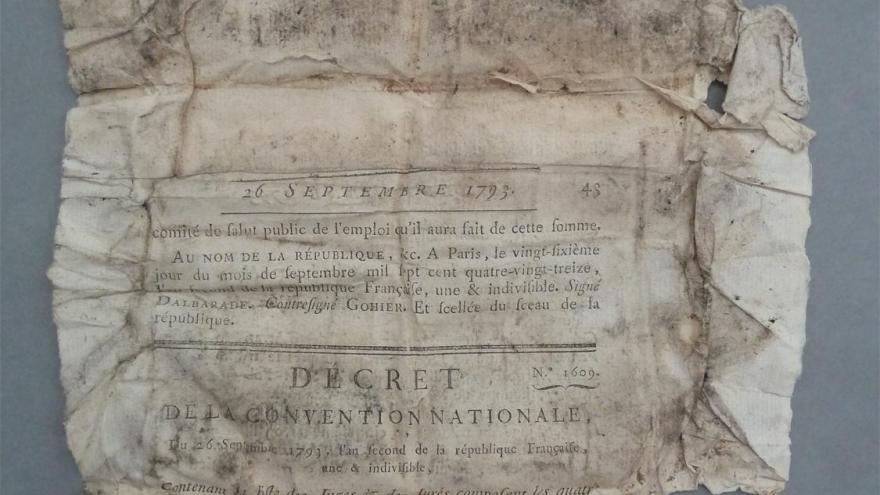 26 SEPTEMBRE 1793. 43
comité de ſalut public de l'emploi qu'il aura fait de cette ſomme.
AU NOM DE LA RÉPUBLIQUE, &c. A Paris, le vingt-ſixième
jour du mois de ſeptembre mil ſept cent quatre-vingt-treize,
l'an ſecond de la république Françaiſe, une & indiviſible. Signé
DALBARADE. Contreſigné GOHIER. Et ſcellée du ſceau de la
république.
DÉCRET N.° 1609.
DE LA CONVENTION NATIONALE,
Du 26 Septembre 1793, l'an ſecond de la république Françaiſe,
une & indiviſible,
Contenant la liſte des Juges & des Jurés compoſant les quatre